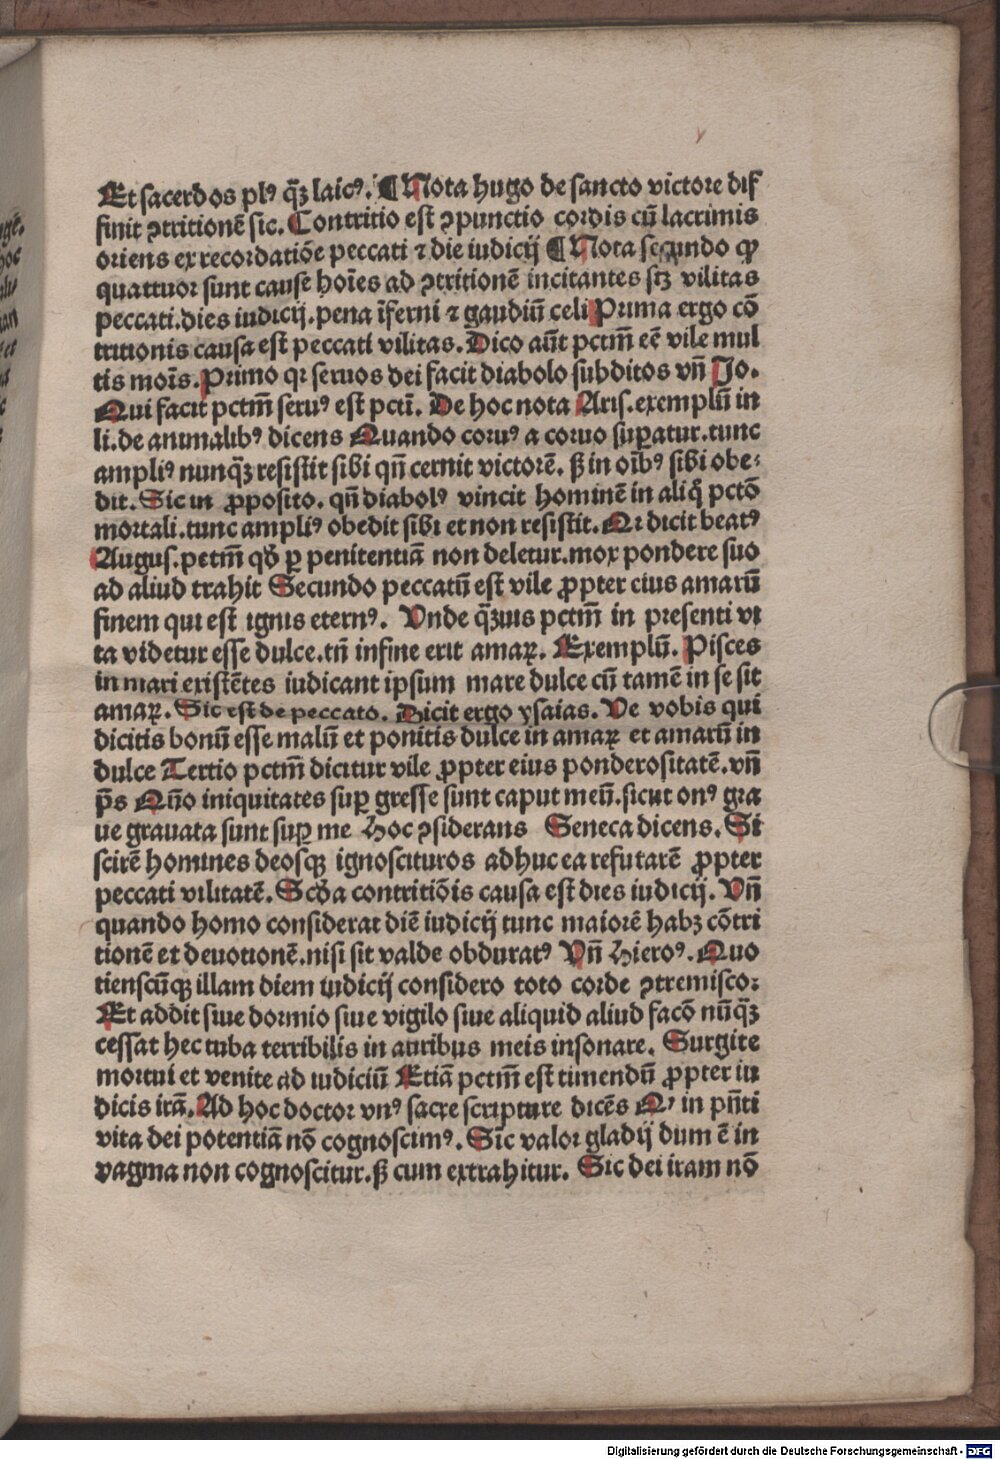 Et sacerdos plꝰ q̄ꝫ laicꝰ. ¶ Nota hugo de sancto victore dif
finit ꝯtritionē sic. Contritio est ꝯpunctio cordis cū lacrimis
oriens ex recordatiōe peccati ⁊ die iudicij ¶ Nota secundo ꝙ
quattuor sunt cause hoīes ad ꝯtritionē incitantes scꝫ vilitas
peccati.dies iudicij.pena īferni ⁊ gaudiū celi Prima ergo cō
tritionis causa est peccati vilitas. Dico aūt pctm̄ eē vile mul
tis moīs. Primo qꝛ seruos dei facit diabolo subditos vn̄ Jo.
Qui facit pctm̄ seruꝰ est pctī. De hoc nota Aris. exemplū in
li. de animalibꝰ dicens Quando coruꝰ a coruo suꝑatur.tunc
ampliꝰ nunqꝫ resistit sibi qn̄ cernit victorē. ß in oībꝰ sibi obe⸗
dit. Sic in ꝓposito. qn̄ diabolꝰ vincit hominē in aliq̄ pctō
mortali.tunc ampliꝰ obedit sibi et non resistit. Qꝛ dicit beatꝰ
Augus. petm̄ qđ ꝑ penitentiā non deletur.mox pondere suo
ad aliud trahit Secundo peccatū est vile ꝓpter eius amarū
finem qui est ignis eternꝰ. Vnde q̄ꝫuis pctm̄ in presenti vi
ta videtur esse dulce.tn̄ infine erit amaꝝ. Exemplū. Pisces
in mari existētes iudicant ipsum mare dulce cū tamē in se sit
amaꝝ. Sic est de peccato. Dicit ergo ysaias. Ve vobis qui
dicitis bonū esse malū et ponitis dulce in amaꝝ et amarū in
dulce Tertio pctm̄ dicitur vile ꝓpter eius ponderositatē.vn̄
p̄s Qn̄o iniquitates suꝑ gresse sunt caput meū.sicut onꝰ gra
ue grauata sunt suꝑ me Hoc ꝯsiderans Seneca dicens. Si
scirē homines deosqꝫ ignoscituros adhuc ea refutarē ꝓpter
peccati vilitatē. Scđa contritiōis causa est dies iudicij. Vn̄
quando homo considerat diē iudicij tunc maiorē habꝫ cōtri
tionē et deuotionē.nisi sit valde obduratꝰ Vn̄ Hieroꝰ. Quo
tienscūqꝫ illam diem iudicij considero toto corde ꝯtremisco:
Et addit siue dormio siue vigilo siue aliquid aliud facō nūq̄ꝫ
cessat hec tuba terribilis in auribus meis insonare. Surgite
mortui et venite ad iudiciū Etiā pctm̄ est timendū ꝓpter iu
dicis irā. Ad hoc doctor vnꝰ sacre scripture dicēs Qꝛ in pn̄ti
vita dei potentiā nō cognoscimꝰ. Sic valor gladij dum ē in
vagina non cognoscitur.ß cum extrahitur. Sic dei iram nō
Digitalisierung gefördert durch die Deutsche Forschungsgemeinschaft - DFG